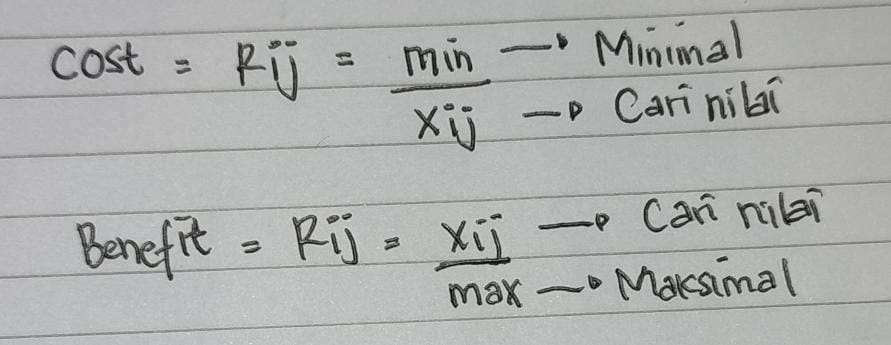 Cost = Rij = min → Minimal
Xij → Cari nilai
Benefit = Rij = Xij → Cari nilai
max → Maksimal